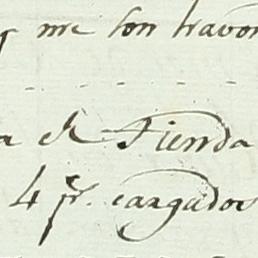 me son travon
a de Tienda
4 ps. cargados